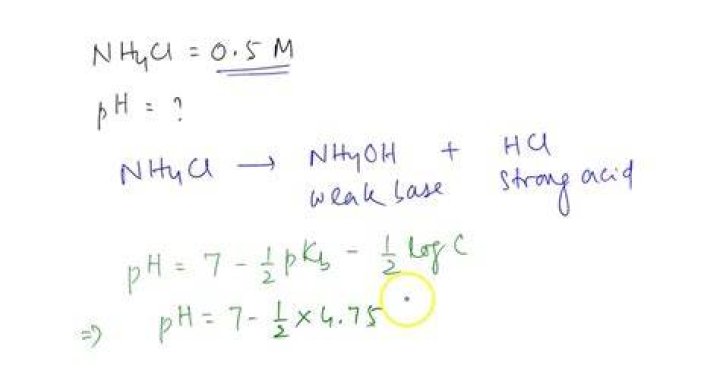 NH4Cl = 0.5 M
pH = ?
NH4Cl → NH4OH + HCl
weak base strong acid
pH = 7 - 1/2 pKb - 1/2 log C
⇒ pH = 7 - 1/2 × 4.75